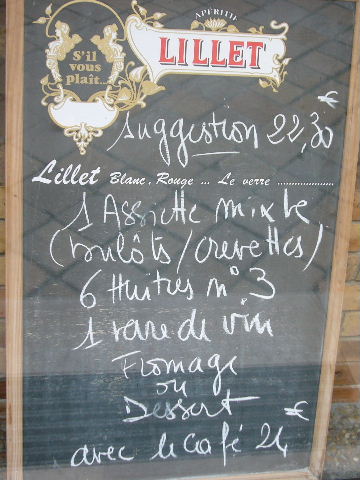 APÉRITIF
LILLET
S'il
vous
plaît...
Suggestion 22,30 €
Lillet Blanc, Rouge ... Le verre ....................
1 Assiette mixte
(bulôts/crevettes)
6 Huitres n° 3
1 vare de vin
Fromage
ou
Dessert
avec le café 24 €